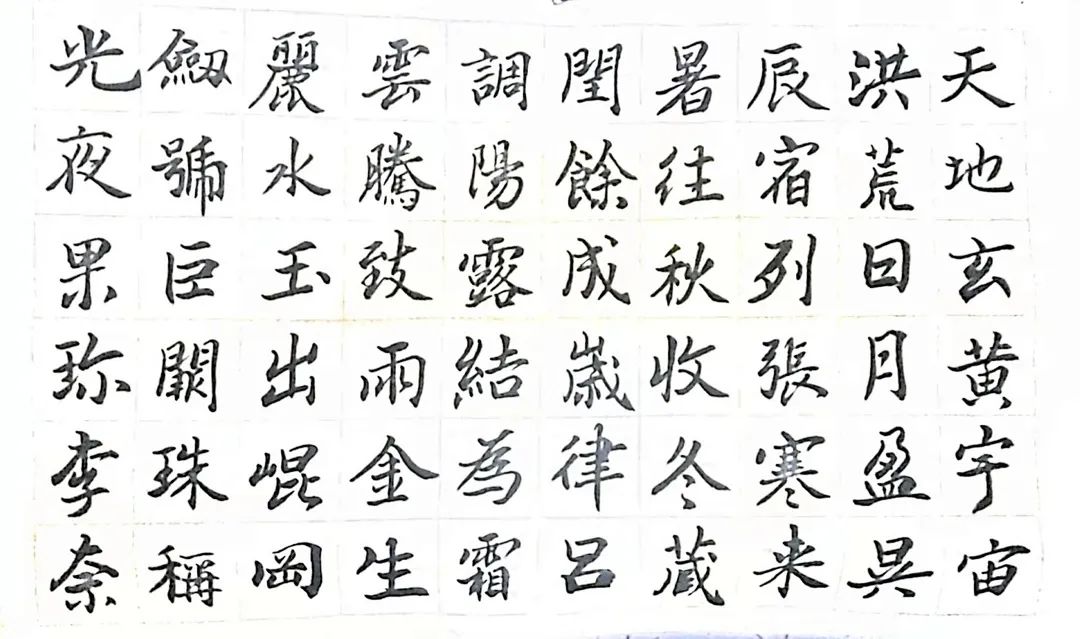 天地玄黄宇宙
洪荒日月盈昃
辰宿列張寒来
暑往秋收冬蔵
閏餘成歳律呂
調陽露結為霜
雲騰致雨金生
麗水玉出崐岡
劔號巨闕珠稱
光夜果珎李柰